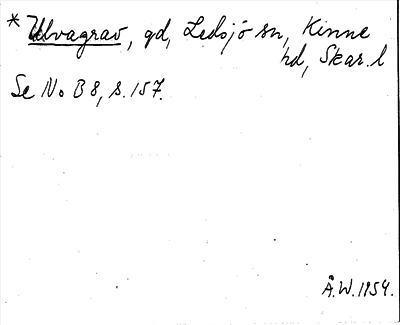 * Ulvagrav, gd, Ledsjö sn, Kinne
hd, Skar. l
Se No B 8, s. 157.
Å.W. 1954.